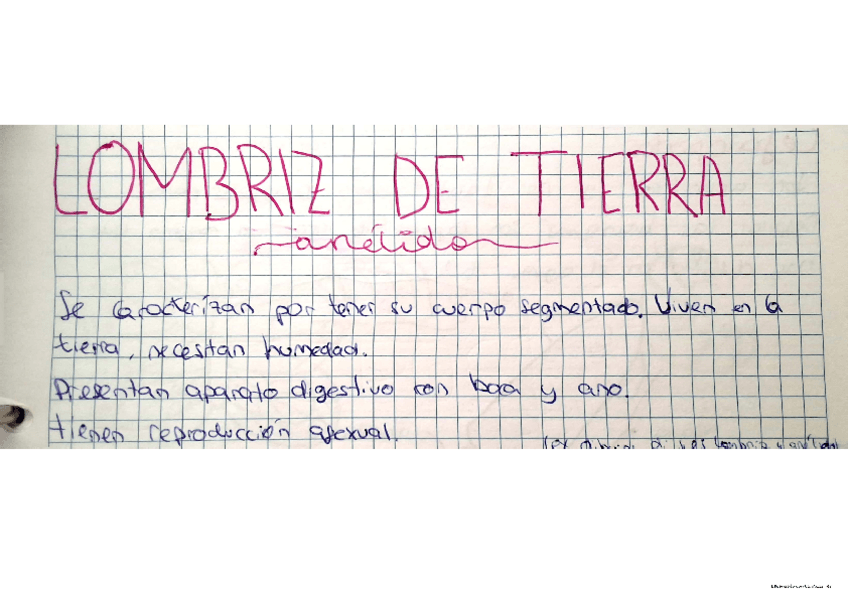 LOMBRIZ DE TIERRA
anélido
Se caracterizan por tener su cuerpo segmentado. Viven en la
tierra, necesitan humedad.
Presentan aparato digestivo con boca y ano.
tienen reproducción asexual.